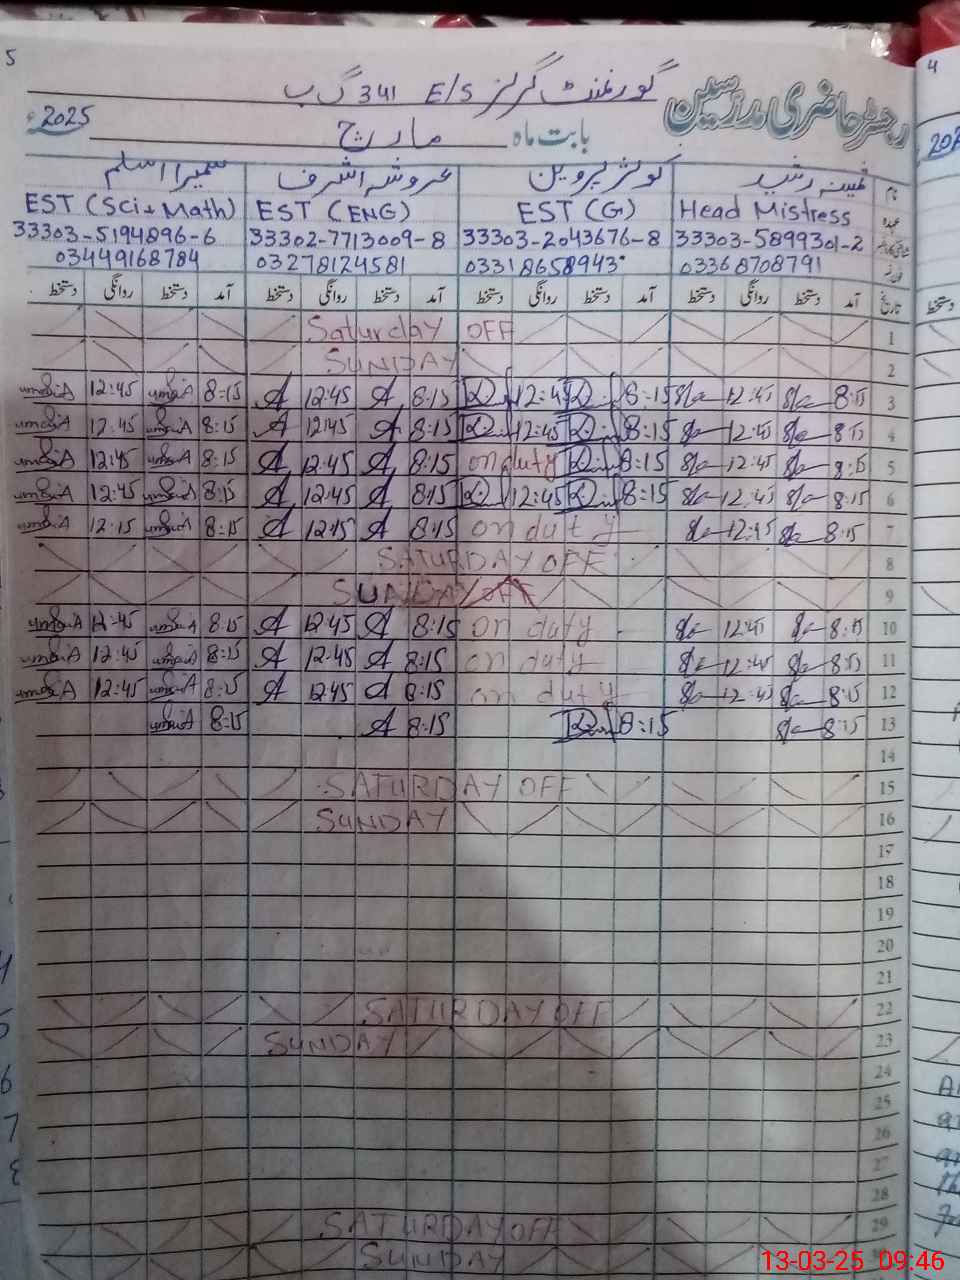 5
گورنمنٹ گرلز E/S 341 گ ب
رجسٹر حاضری مدرسین
بابت ماہ مارچ 2025ء
نام ثمینہ رشید کوثر پروین عروشہ اشرف سمیرا اسلم
عہدہ Head Mistress EST (G) EST (ENG) EST (Sci + Math)
33303-5899301-2 33303-2043676-8 33302-7713009-8 33303-5194896-6
03368708791 03318658943 03278124581 03449168784
تاریخ آمد دستخط روانگی دستخط آمد دستخط روانگی دستخط آمد دستخط روانگی دستخط آمد دستخط روانگی دستخط
1 Saturday OFF
2 SUNDAY
3 8:15 12:45 8:15 12:45 8:15 A 12:45 A 8:15 12:45
4 8:15 12:45 8:15 12:45 8:15 A 12:45 A 8:15 12:45
5 8:15 12:45 8:15 on duty 8:15 A 12:45 A 8:15 12:45
6 8:15 12:45 8:15 12:45 8:15 A 12:45 A 8:15 12:45
7 8:15 12:15 on duty 8:15 A 12:15 A 8:15 12:15
8 SATURDAY OFF
9 SUNDAY OFF
10 8:15 12:45 on duty 8:15 A 12:45 A 8:15 12:45
11 8:15 12:45 on duty 8:15 A 12:45 A 8:15 12:45
12 8:15 12:45 on duty 8:15 A 12:45 A 8:15 12:45
13 8:15 8:15 8:15 A 8:15
14
15 SATURDAY OFF
16 SUNDAY
17
18
19
20
21
22 SATURDAY OFF
23 SUNDAY
24
25
26
27
28
29 SATURDAY OFF
SUNDAY
4
دستخط
13-03-25 09:46